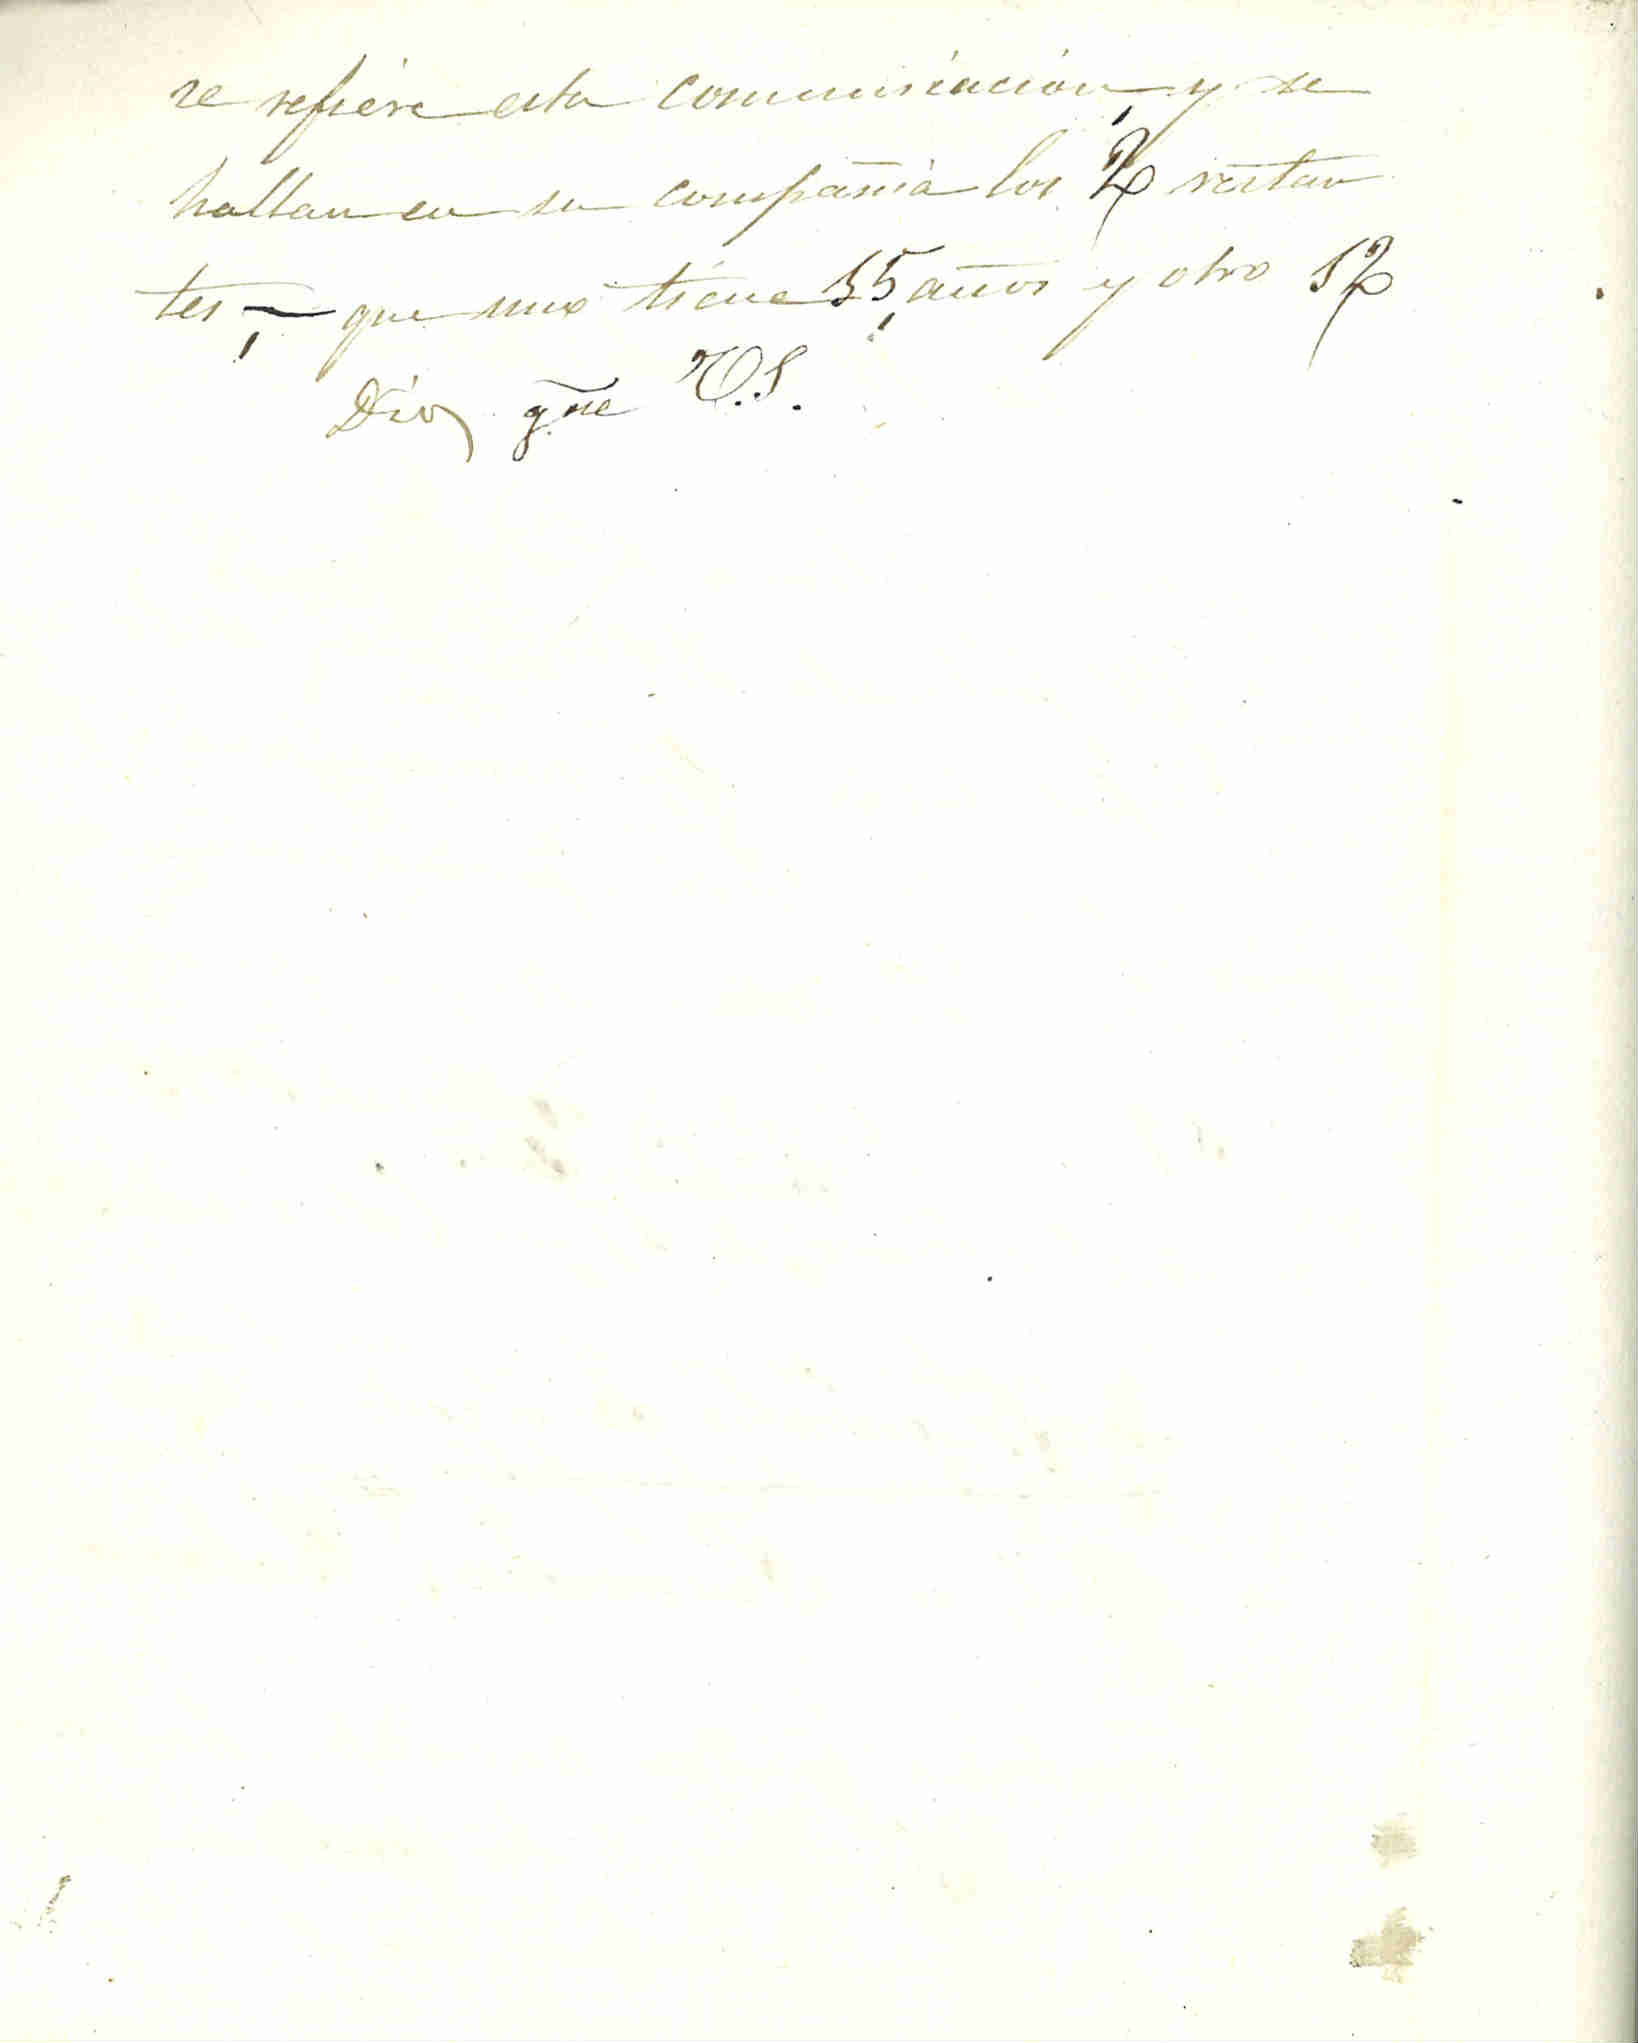 se refiere esta comunicacion, y se
hallan en su compañia los 2 restan
tes, – que uno tiene 15, años y otro 12
Dios gue V.S.